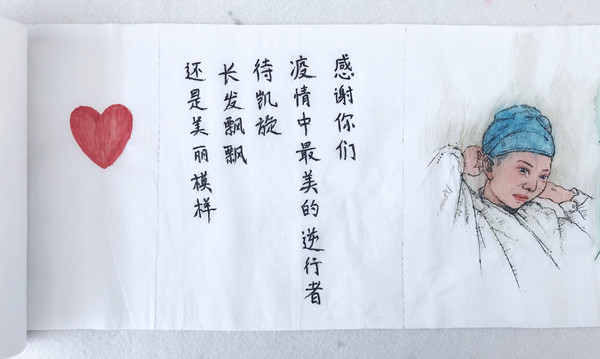 感谢你们
疫情中最美的逆行者
待凯旋
长发飘飘
还是美丽模样